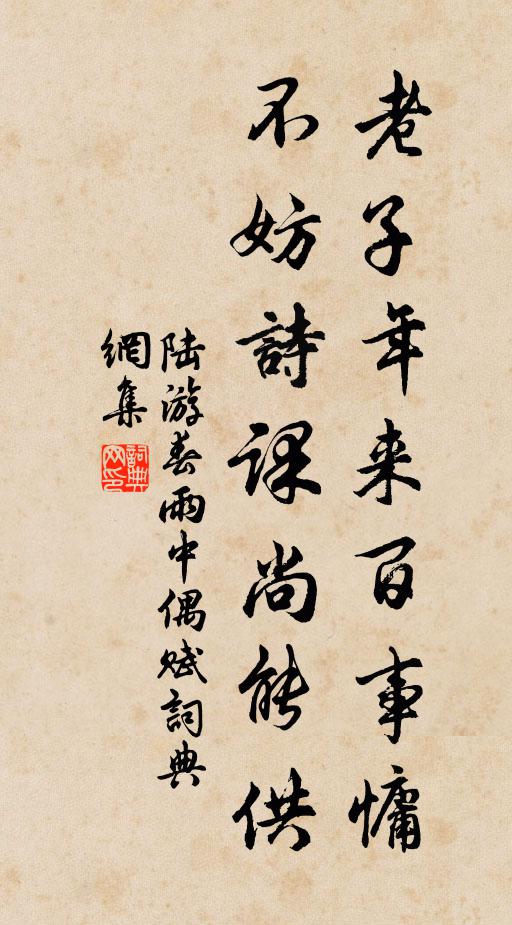 老子年来百事慵
不妨詩课尚能供
陆游春雨中偶赋詞典
網集
詞典网印